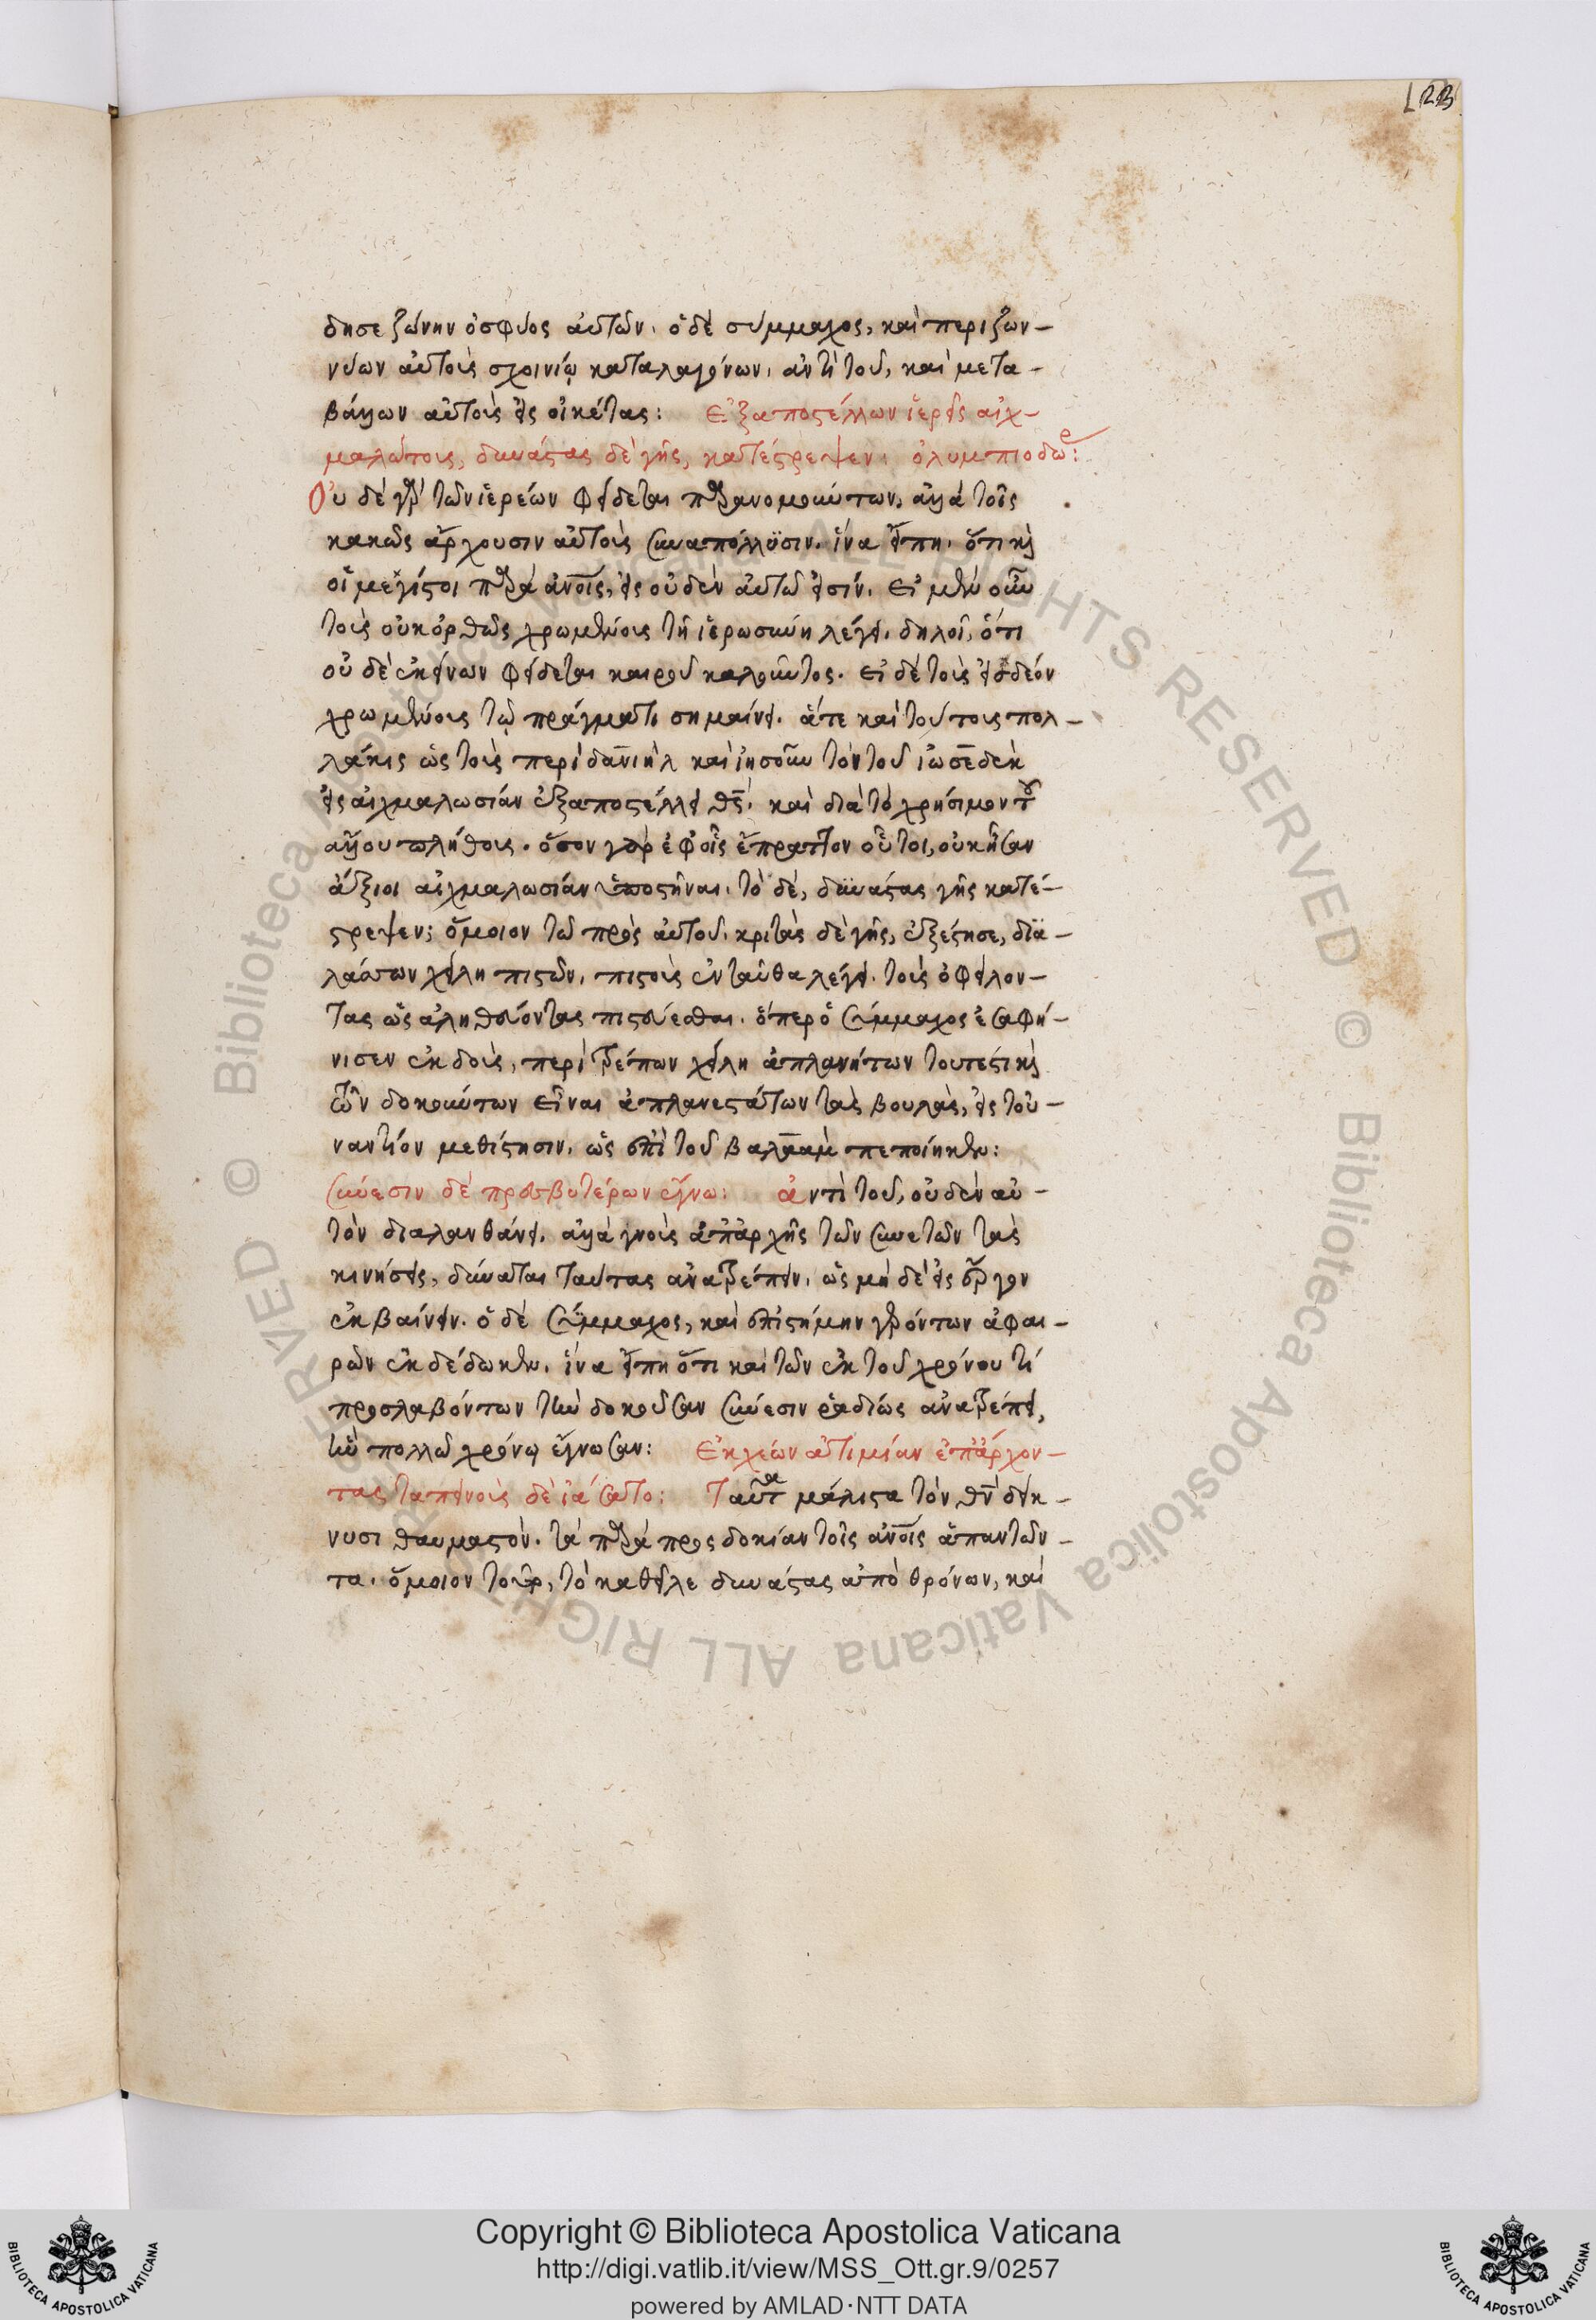 123
δησε ζώνην ὀσφύος αὐτῶν. ὁ δὲ σύμμαχος, καὶ περιζων-
νύων αὐτοὺς σχοινίῳ καταλαγόνων, ἀντὶ τοῦ, καὶ μετα-
βάλλων αὐτοὺς εἰς οἰκέτας: Ἐξαποστέλλων ἱερεῖς αἰχ-
μαλώτους, δυνάστας δὲ γῆς, κατέστρεψεν. ὀλυμπιοδώρ:
Οὐ δὲ γὰρ τῶν ἱερέων φείδεται παρανομούντων, ἀλλὰ τοῖς
κακῶς ἄρχουσιν αὐτοὺς συναπόλλϋσιν. ἵνα εἴπη, ὅτι καὶ
οἱ μέγιστοι παρὰ ἀνοις, εἰς οὐδὲν αὐτῶ εἰσίν. εἰ μὲν οὖν
τοὺς οὐκ ὀρθῶς χρωμένους τῆ ἱερωσύνη λέγει, δηλοῖ, ὅτι
οὐ δὲ ἐκείνων φείδεται καιροῦ καλοῦντος. εἰ δὲ τοὺς εἰς δέον
χρωμένους τῷ πράγματι σημαίνει. ἅτε καὶ τούτους πολ-
λάκις ὡς τοὺς περὶ δανιὴλ καὶ ἰησοῦν τὸν τοῦ ἰωσεδὲκ
εἰς αἰχμαλωσίαν ἐξαποστέλλει θς, καὶ διὰ τὸ χρήσιμον τοῦ
ἄλλου πλήθους. ὅσον γὰρ ἐφ οἷς ἔπραττον οὗτοι, οὐκ ἦσαν
ἄξιοι αἰχμαλωσίαν ὑποστῆναι. τὸ δὲ, δϋνάστας γῆς κατέ-
στρεψεν; ὅμοιον τῶ πρὸς αὐτοῦ. κριτὰς δὲ γῆς, ἐξέστησε, δϊα-
λάσσων χείλη πιστῶν, πιστοὺς ἐνταῦθα λέγει. τοὺς ὀφείλον-
τας ὡς ἀληθεύοντας πιστεύεσθαι. ὅπερ ὁ σύμμαχος ἐσαφή-
νισεν ἐκδοὺς, περιτρέπων χείλη ἀπλανήτων τουτέστι καὶ
τῶν δοκούντων εἶναι ἀπλανεστάτων τὰς βουλὰς, εἰς τοὐ-
ναντίον μεθίστησιν. ὡς ἐπὶ τοῦ βαλαὰμ πεποίηκεν:
Σύνεσιν δὲ πρεσβυτέρων ἔγνω: ἀντὶ τοῦ, οὐδὲν αὐ-
τὸν διαλανθάνει. ἀλλὰ γνοὺς ἀπ ἀρχῆς τῶν συνετῶν τὰς
κινήσεις, δύναται ταύτας ἀνατρέπειν, ὡς μὴ δὲ εἰς ἔργον
ἐκβαίνειν. ὁ δὲ σύμμαχος, καὶ ἐπιστήμην γερόντων ἀφαι-
ρῶν ἐκδέδωκεν. ἵνα εἴπη ὅτι καὶ τῶν ἐκ τοῦ χρόνου τί
προσλαβόντων τὴν δοκοῦσαν σύνεσιν ῥαδίως ἀνατρέπει,
ἣν πολλῶ χρόνῳ ἔγνωσαν: Ἐκχέων ἀτιμίαν ἐπ ἄρχον-
τας ταπεινοὺς δὲ ἰάσατο: Ταῦτα μάλιστα τὸν θν δείκ-
νυσι θαυμαστὸν. τὰ παρὰ προσδοκίαν τοῖς ἀνοις ἀπαντῶν-
τα. ὅμοιον τοῦ, τὸ καθεῖλε δυνάστας ἀπὸ θρόνων, καὶ
Copyright © Biblioteca Apostolica Vaticana
http://digi.vatlib.it/view/MSS_Ott.gr.9/0257
powered by AMLAD·NTT DATA